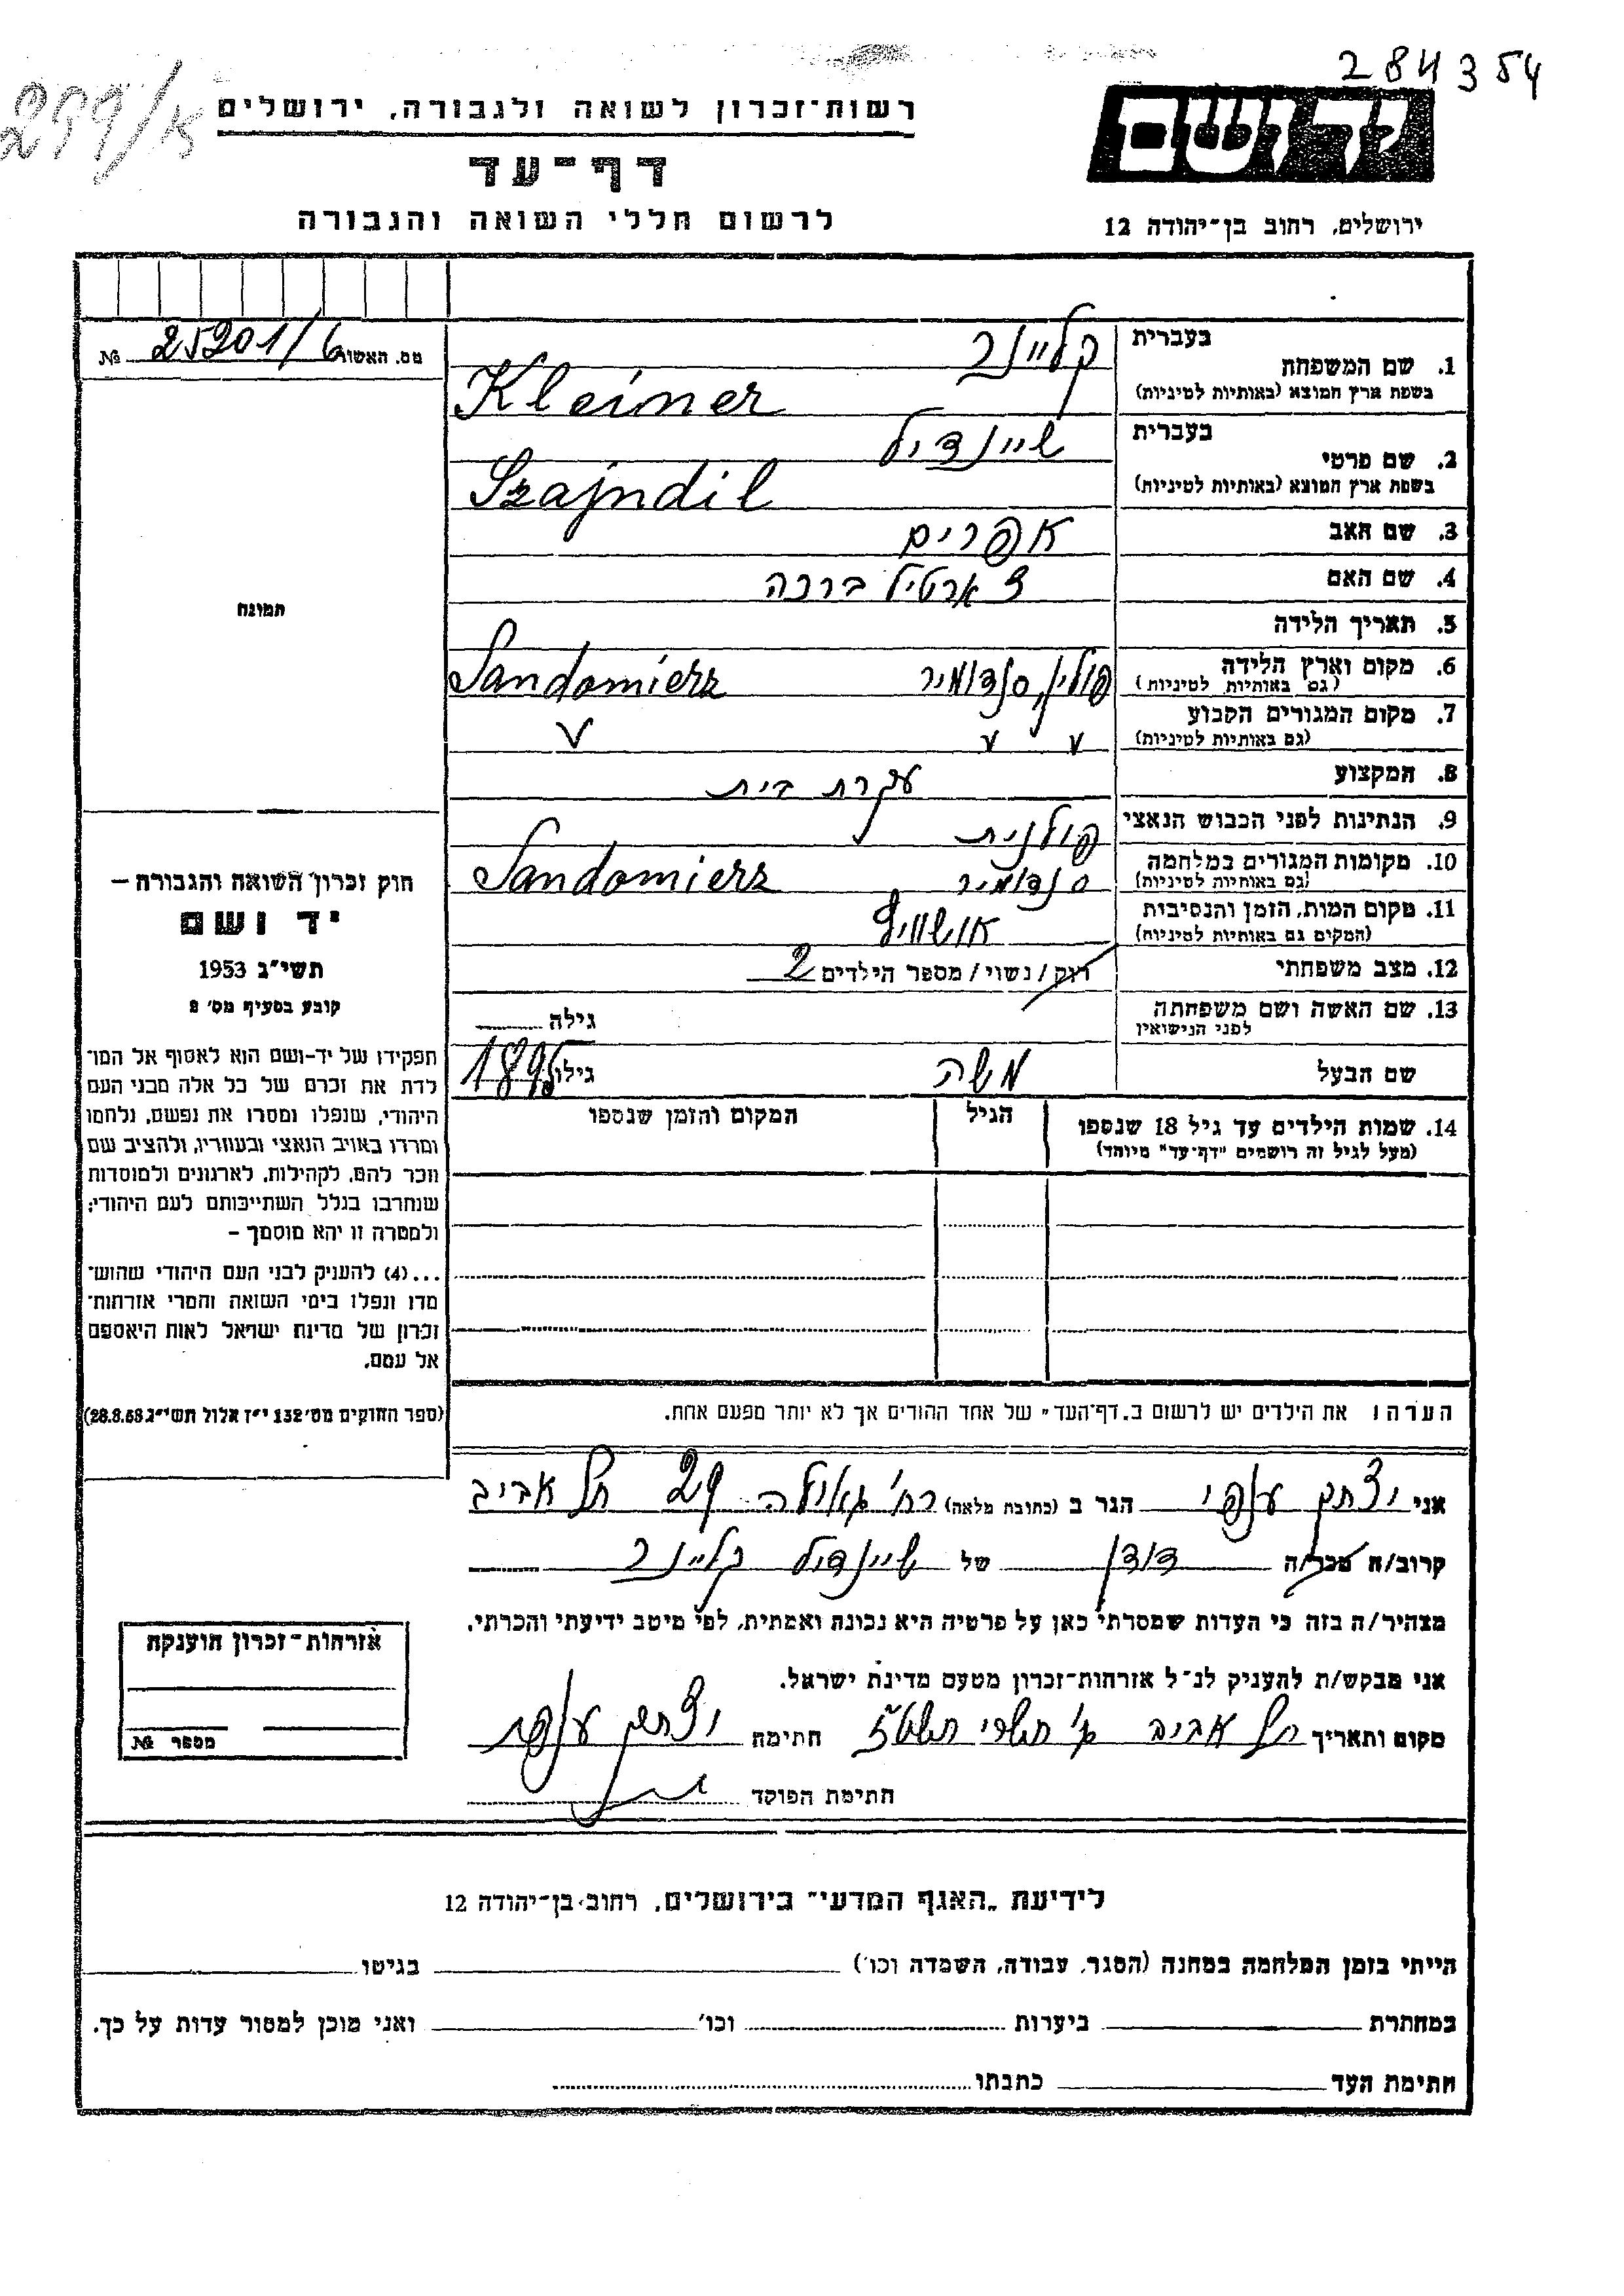 284354
259/א
רשות־זכרון לשואה ולגבורה, ירושלים
ידושם
דף־עד
לרשום חללי השואה והגבורה
ירושלים, רחוב בן־יהודה 12
מס. האשור 25201/6 №
בעברית קליינר
1. שם המשפחה
בשפת ארץ המוצא (באותיות לטיניות) Kleiner
בעברית שיינדיל
2. שם פרטי
בשפת ארץ המוצא (באותיות לטיניות) Szajndil
3. שם האב אפרים
4. שם האם ארטיל ברכה
תמונה
5. תאריך הלידה
6. מקום וארץ הלידה פולין, סנדומיר Sandomierz
(גם באותיות לטיניות)
7. מקום המגורים הקבוע v v v
(גם באותיות לטיניות)
8. המקצוע עקרת בית
9. הנתינות לפני הכבוש הנאצי פולנית
10. מקומות המגורים במלחמה סנדומיר Sandomierz
(גם באותיות לטיניות)
11. מקום המות, הזמן והנסיבות אושוויץ
(המקום גם באותיות לטיניות)
12. מצב משפחתי רוק/נשוי/מספר הילדים 2
13. שם האשה ושם משפחתה
לפני הנישואין גילה
שם הבעל משה גילו 1895
14. שמות הילדים עד גיל 18 שנספו הגיל המקום והזמן שנספו
(מעל לגיל זה רושמים "דף־עד" מיוחד)
חוק זכרון השואה והגבורה —
יד ושם
תשי"ג 1953
קובע בסעיף מס' 2
תפקידו של יד-ושם הוא לאסוף אל המו־
לדת את זכרם של כל אלה מבני העם
היהודי, שנפלו ומסרו את נפשם, נלחמו
ומרדו באויב הנאצי ובעוזריו, ולהציב שם
וזכר להם, לקהילות, לארגונים ולמוסדות
שנחרבו בגלל השתייכותם לעם היהודי;
ולמטרה זו יהא מוסמך —
...(4) להעניק לבני העם היהודי שהוש־
מדו ונפלו בימי השואה והמרי אזרחות־
זכרון של מדינת ישראל לאות היאספם
אל עמם.
(ספר החוקים מס' 132 י"ז אלול תשי"ג 28.8.53)
הערה: את הילדים יש לרשום ב„דף־העד" של אחד ההורים אך לא יותר מפעם אחת.
אני יצחק ענפי הגר ב (כתובת מלאה) רח' גאולה 29 תל אביב
קרוב/ה מכר/ה דודן של שיינדיל קליינר
מצהיר/ה בזה כי העדות שמסרתי כאן על פרטיה היא נכונה ואמתית, לפי מיטב ידיעתי והכרתי.
אני מבקש/ת להעניק לנ"ל אזרחות־זכרון מטעם מדינת ישראל.
מקום ותאריך תל אביב תשרי חתימה יצחק ענפי
חתימת הפוקד
אזרחות־זכרון הוענקה
מספר №
לידיעת „האגף המדעי" בירושלים, רחוב בן־יהודה 12
הייתי בזמן המלחמה במחנה (הסגר, עבודה, השמדה וכו') בגיטו
במחתרת ביערות וכו' ואני מוכן למסור עדות על כך.
חתימת העד כתבתו